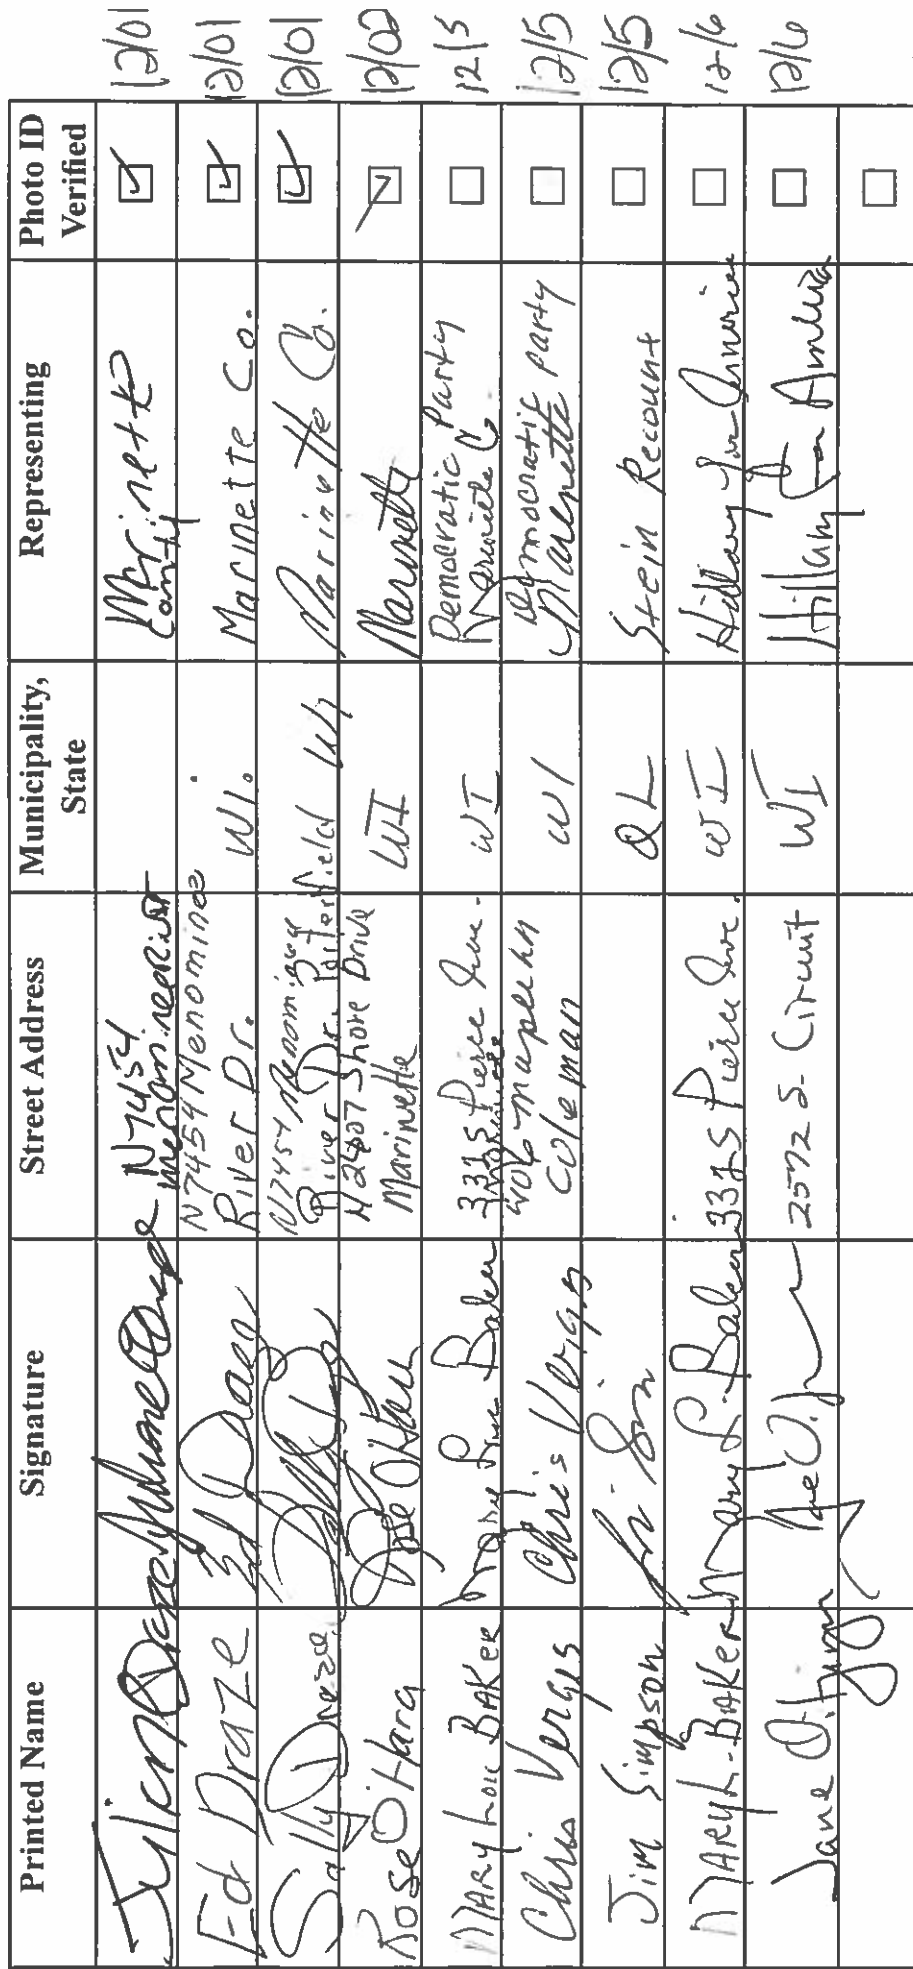 Printed Name Signature Street Address Municipality, State Representing Photo ID Verified
N7454 Marinette County 12/01
Ed Draze Ed Draze N7454 Menominee River Dr. WI. Marinette Co. 12/01
Sally Draze N7454 Menominee River Dr. Porterfield WI Marinette Co. 12/01
Rose OHara Rose OHara Shore Drive Marinette WI Marinette 12/02
MARY Lou BAKER Mary Lou Baker Pierce Ave. WI Democratic Party Marinette Co 12/5
Chris Vergis Chris Vergis maple Ln Coleman WI Democratic party Marinette 12/5
Jim Simpson Stein Recount 12/5
MARY L. BAKER Mary L. Baker Pierce Ave. WI Hillary for America 12/6
Jane 2572 S. Circuit WI Hillary for America 12/6